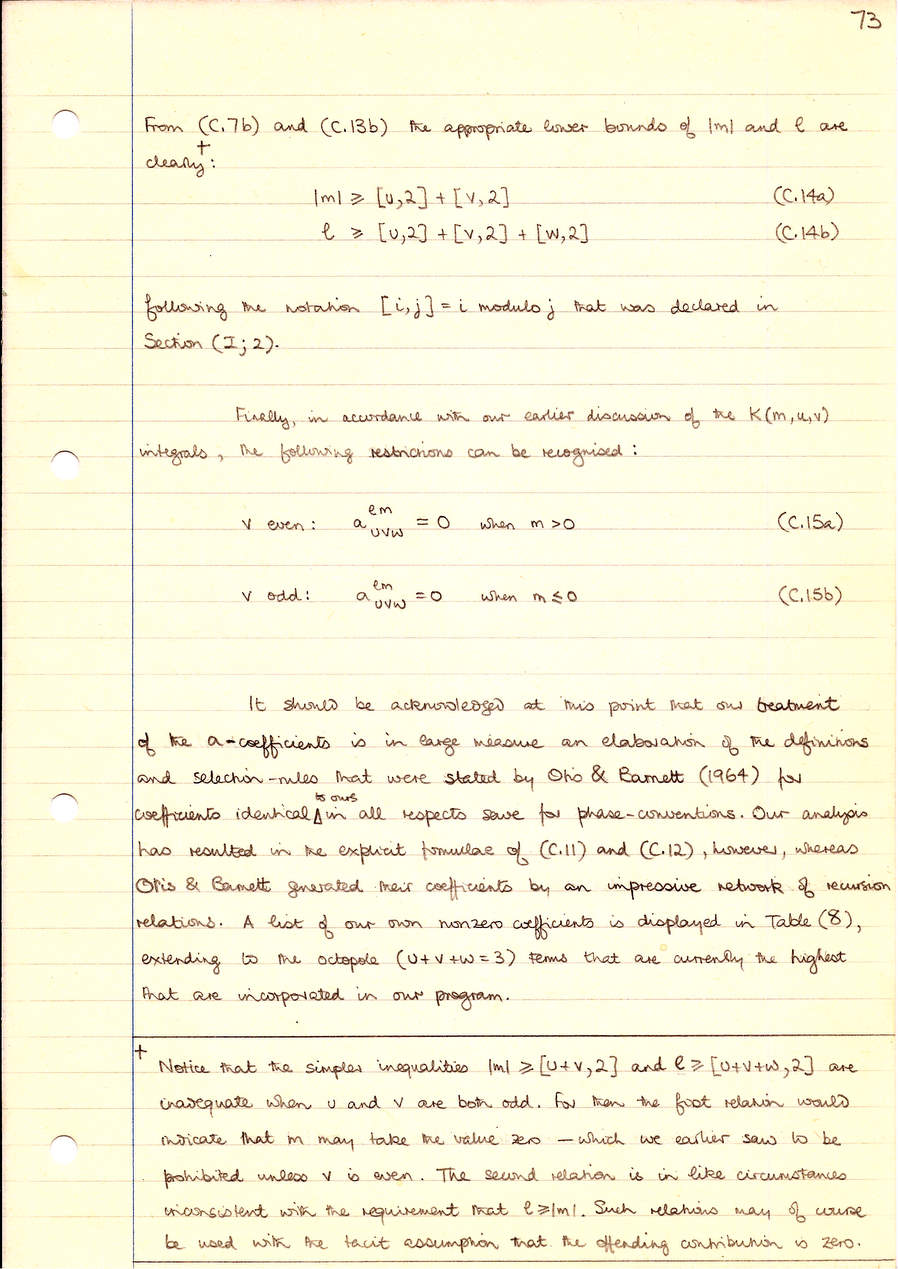 73
From (C.7b) and (C.13b) the appropriate lower bounds of |m| and ℓ are
clearly†:
|m| ⩾ [u,2] + [v,2] (C.14a)
ℓ ⩾ [u,2] + [v,2] + [w,2] (C.14b)
following the notation [i,j] = i modulo j that was declared in
Section (I;2).
Finally, in accordance with our earlier discussion of the K(m,u,v)
integrals, the following restrictions can be recognised:
v even: a^{ℓm}_{uvw} = 0 when m > 0 (C.15a)
v odd: a^{ℓm}_{uvw} = 0 when m ⩽ 0 (C.15b)
It should be acknowledged at this point that our treatment
of the a-coefficients is in large measure an elaboration of the definitions
and selection-rules that were stated by Otis & Barnett (1964) for
coefficients identical to ours in all respects save for phase-conventions. Our analysis
has resulted in the explicit formulae of (C.11) and (C.12), however, whereas
Otis & Barnett generated their coefficients by an impressive network of recursion
relations. A list of our own nonzero coefficients is displayed in Table (8),
extending to the octopole (u+v+w=3) terms that are currently the highest
that are incorporated in our program.
† Notice that the simpler inequalities |m| ⩾ [u+v,2] and ℓ ⩾ [u+v+w,2] are
inadequate when u and v are both odd. For then the first relation would
indicate that m may take the value zero — which we earlier saw to be
prohibited unless v is even. The second relation is in like circumstances
inconsistent with the requirement that ℓ⩾|m|. Such relations may of course
be used with the tacit assumption that the offending contribution is zero.